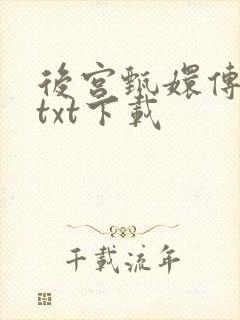 後宮甄嬛傳
txt下載
千載流年